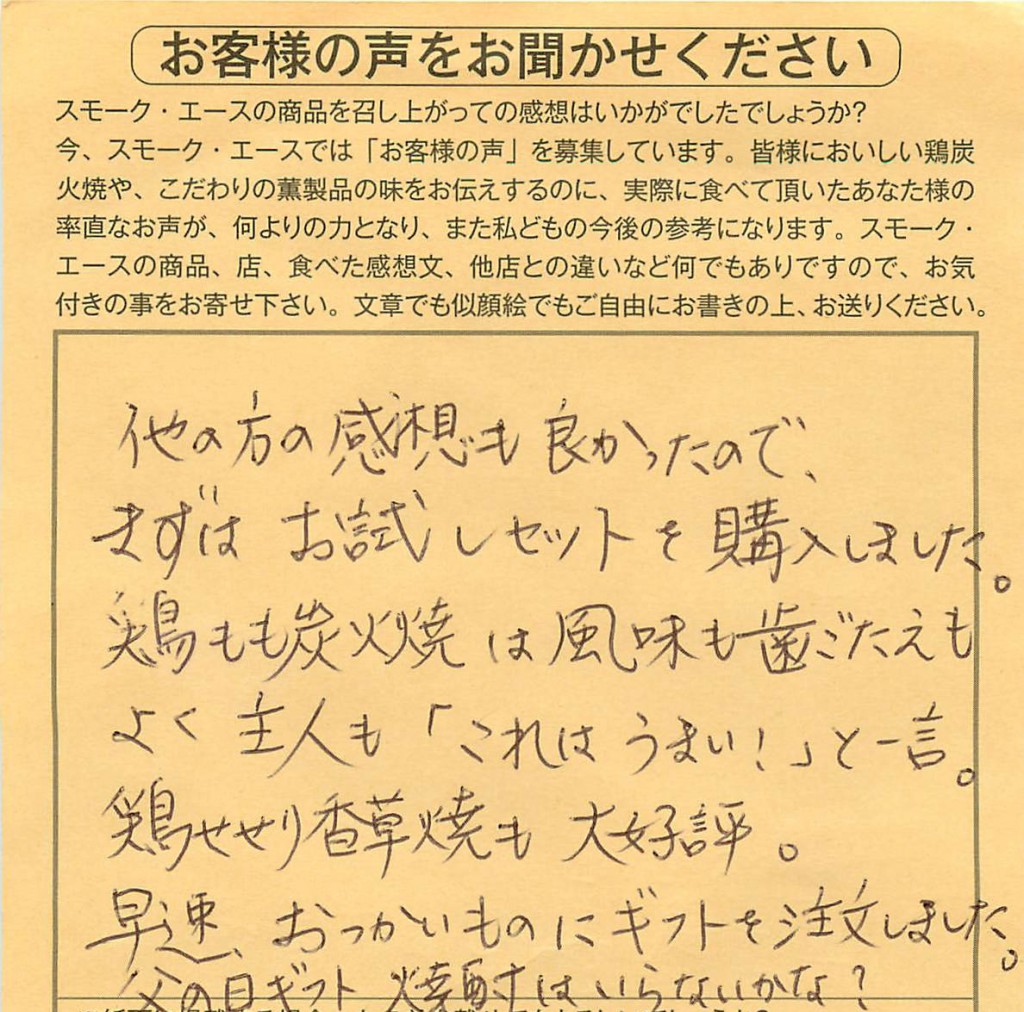 お客様の声をお聞かせください
スモーク・エースの商品を召し上がっての感想はいかがでしたでしょうか?
今、スモーク・エースでは「お客様の声」を募集しています。皆様においしい鶏炭
火焼や、こだわりの薫製品の味をお伝えするのに、実際に食べて頂いたあなた様の
率直なお声が、何よりの力となり、また私どもの今後の参考になります。スモーク・
エースの商品、店、食べた感想文、他店との違いなど何でもありですので、お気
付きの事をお寄せ下さい。文章でも似顔絵でもご自由にお書きの上、お送りください。
他の方の感想も良かったので、
まずは お試しセットを購入しました。
鶏もも炭火焼は風味も歯ごたえも
よく 主人も「これはうまい!」と一言。
鶏せせり香草焼も 大好評。
早速、おつかいものにギフトを注文しました。
父の日ギフト 焼酎はいらないかな?